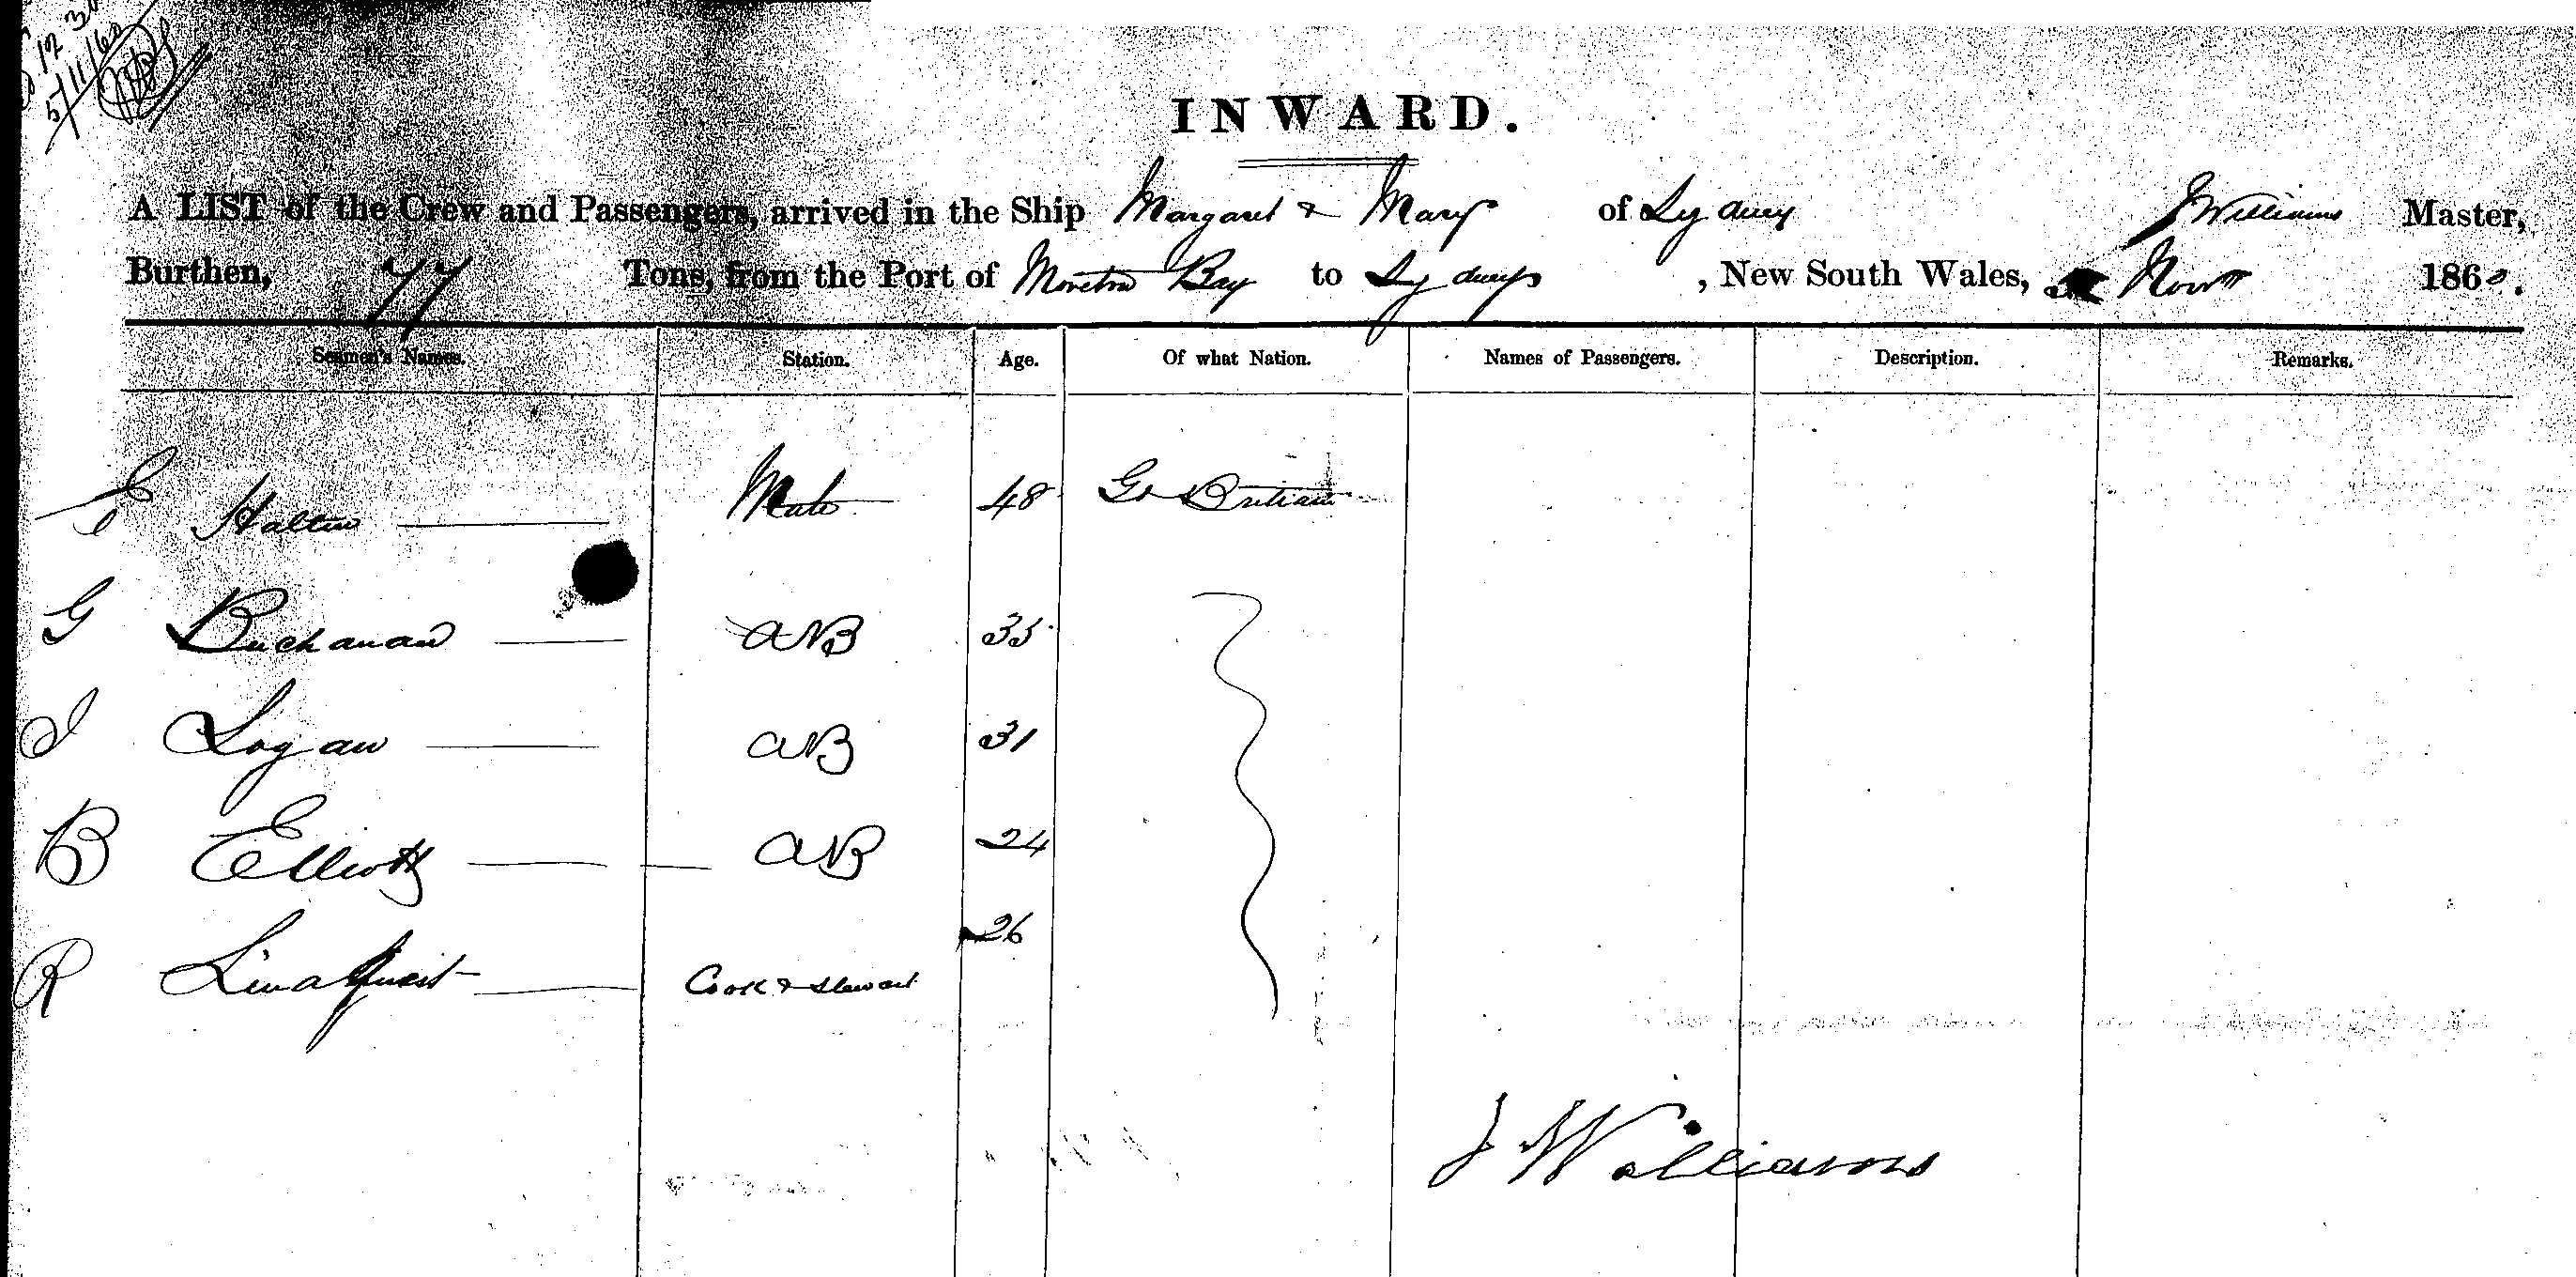 12 30
5/11/60
INWARD.
A LIST of the Crew and Passengers, arrived in the Ship Margaret & Mary of Sydney J Williams Master,
Burthen, 77 Tons, from the Port of Moreton Bay to Sydney , New South Wales, Novr 1860.
Seamen's Names. Station. Age. Of what Nation. Names of Passengers. Description. Remarks.
E Halten Mate 48 Gt Britain
G Buchanan AB 35
J Logan AB 31
B Elliott AB 24
R Linaquist Cook & Steward 26
J Williams